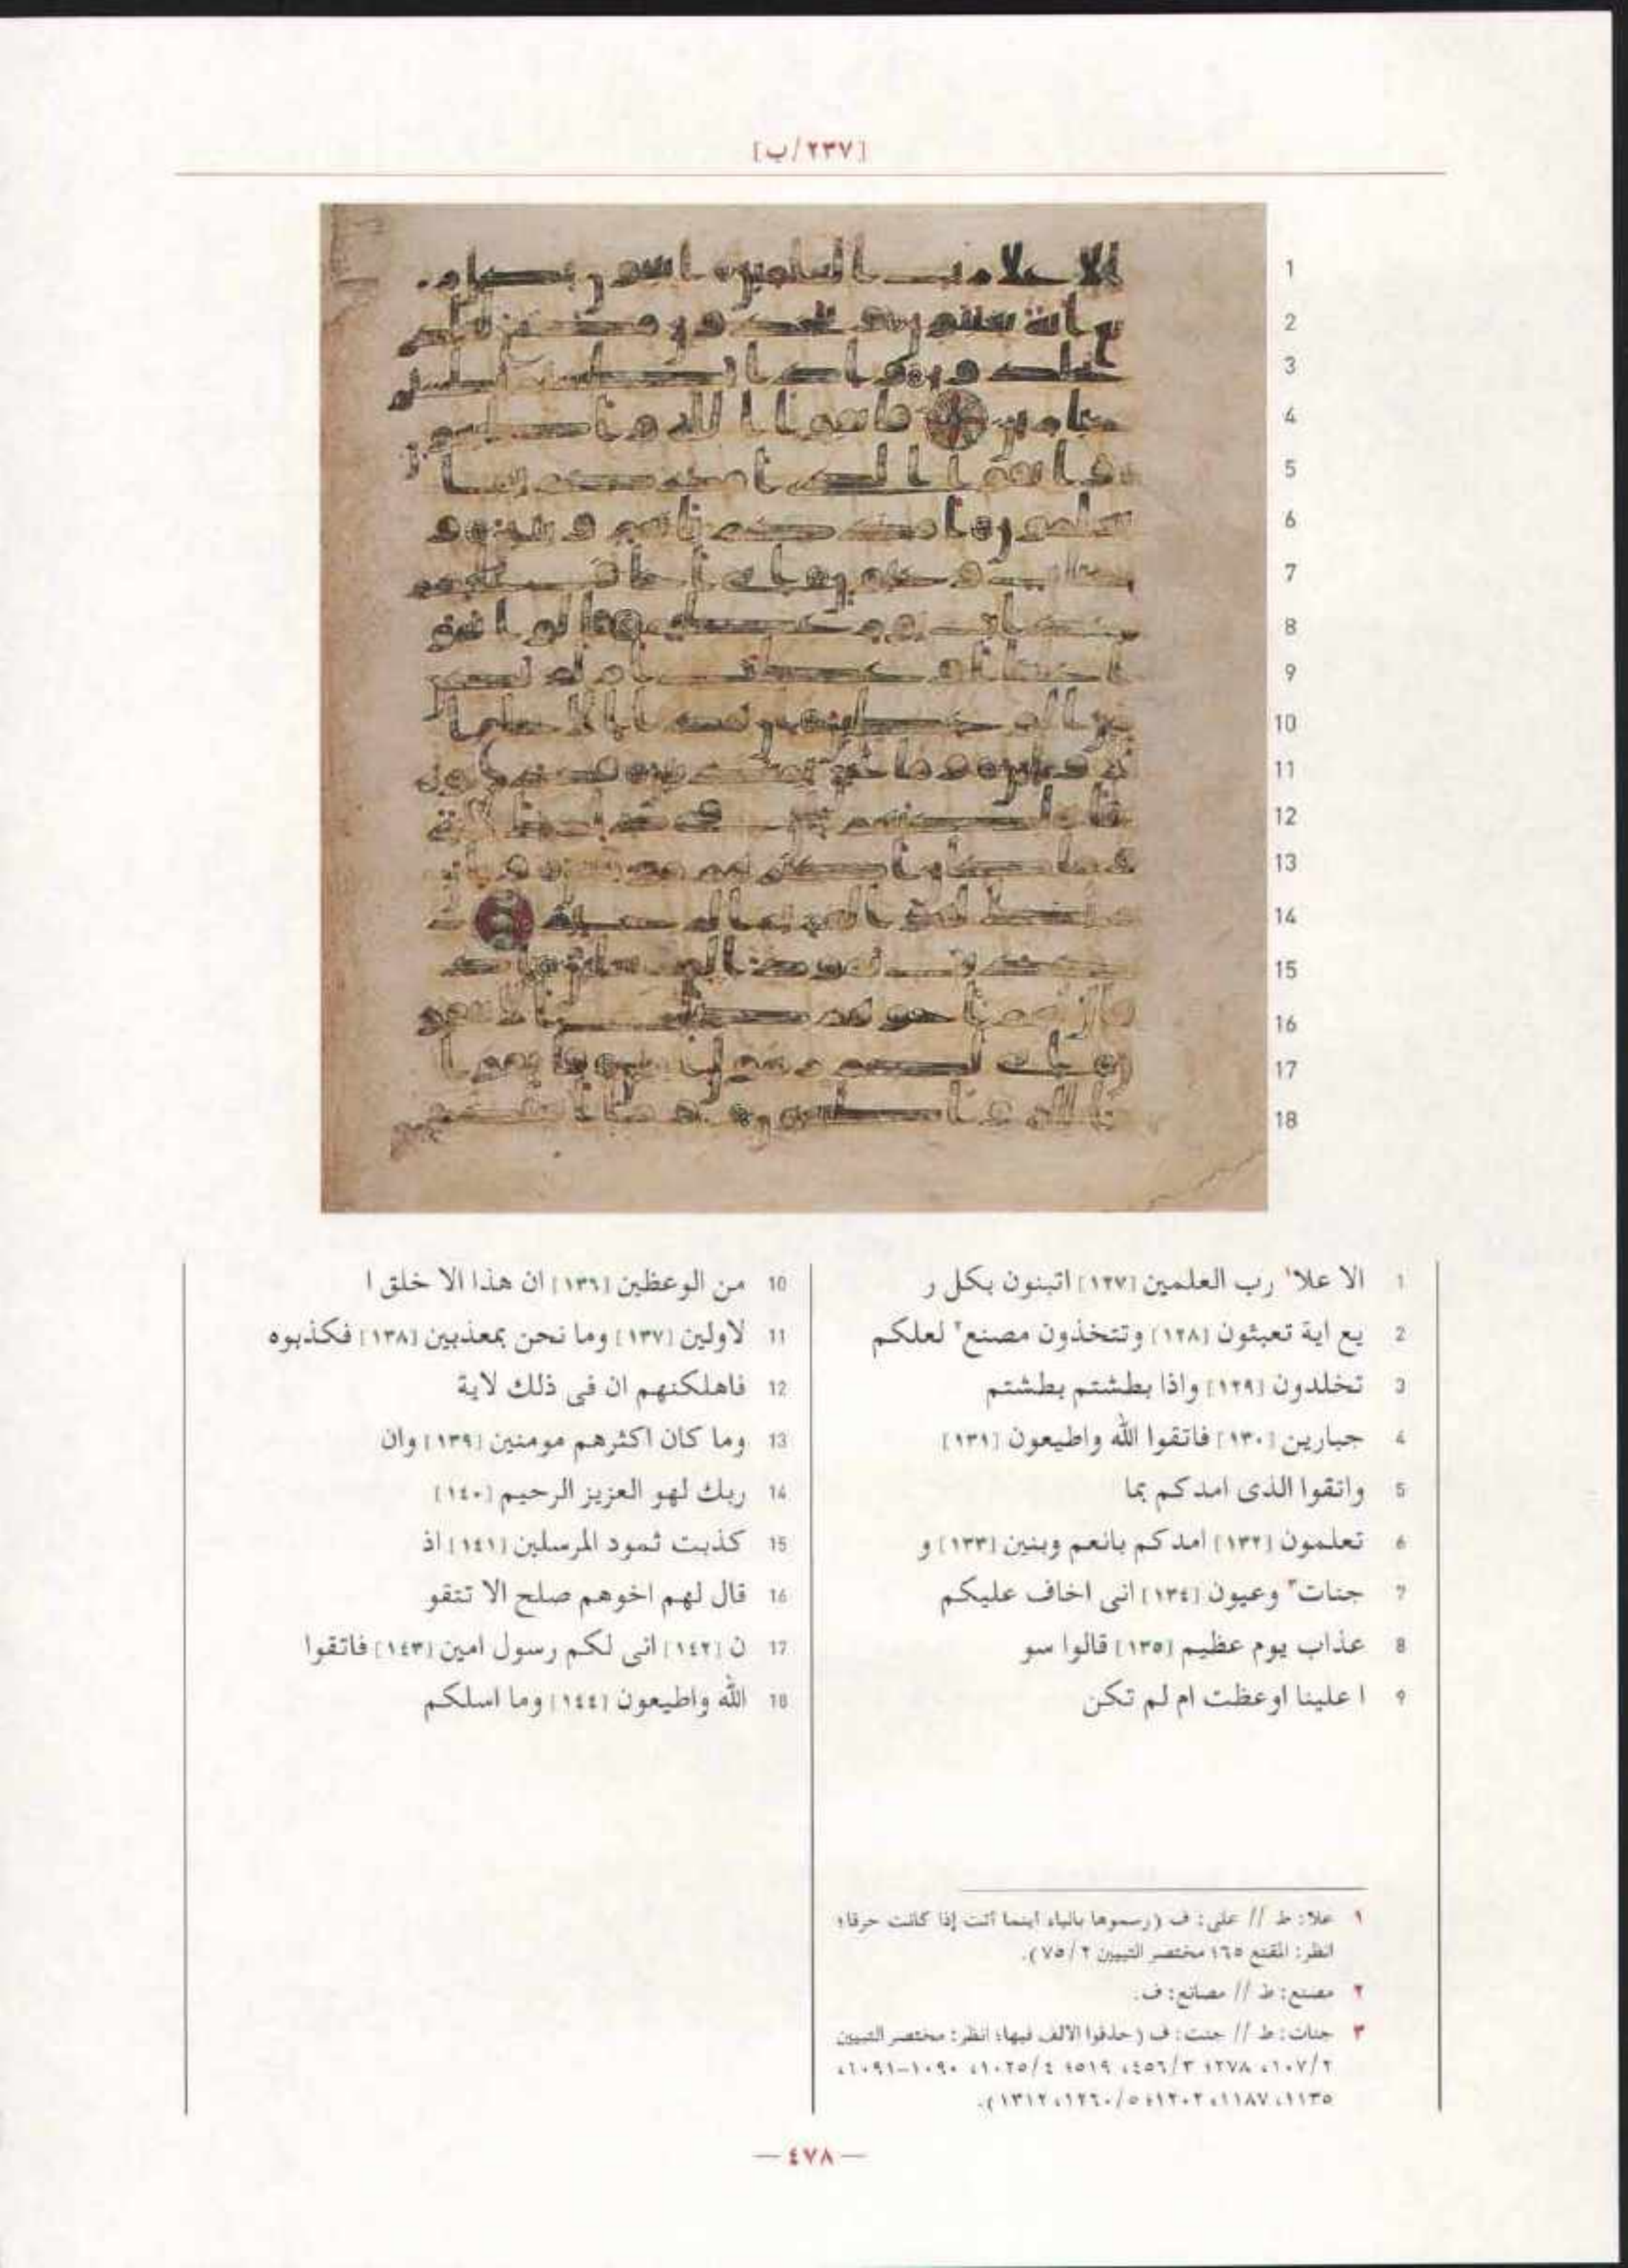 [٢٣٧/ب]
1
2
3
4
5
6
7
8
9
10
11
12
13
14
15
16
17
18
1 الا علا١ رب العلمين [١٢٧] اتبنون بكل ر
2 يع اية تعبثون [١٢٨] وتتخذون مصنع٢ لعلكم
3 تخلدون [١٢٩] واذا بطشتم بطشتم
4 جبارين [١٣٠] فاتقوا الله واطيعون [١٣١]
5 واتقوا الذى امدكم بما
6 تعلمون [١٣٢] امدكم بانعم وبنين [١٣٣] و
7 جنات٣ وعيون [١٣٤] انى اخاف عليكم
8 عذاب يوم عظيم [١٣٥] قالوا سو
9 ا علينا اوعظت ام لم تكن
10 من الوعظين [١٣٦] ان هذا الا خلق ا
11 لاولين [١٣٧] وما نحن بمعذبين [١٣٨] فكذبوه
12 فاهلكنهم ان فى ذلك لاية
13 وما كان اكثرهم مومنين [١٣٩] وان
14 ربك لهو العزيز الرحيم [١٤٠]
15 كذبت ثمود المرسلين [١٤١] اذ
16 قال لهم اخوهم صلح الا تتقو
17 ن [١٤٢] انى لكم رسول امين [١٤٣] فاتقوا
18 الله واطيعون [١٤٤] وما اسلكم
١ علا: ط // على: ف (رسموها بالياء أينما أتت إذا كانت حرفا؛
انظر: المقنع ٦٥؛ مختصر التبيين ٢/٧٥).
٢ مصنع: ط // مصانع: ف.
٣ جنات: ط // جنت: ف (حذفوا الالف فيها؛ انظر: مختصر التبيين
٢/١٠٧، ٢٧٨؛ ٣/٤٥٦، ٥١٩؛ ٤/١٠٢٥، ١٠٩٠-١٠٩١،
١١٣٥، ١١٨٧، ١٢٠٢؛ ٥/١٢٦٠، ١٣١٢).
— ٤٧٨ —